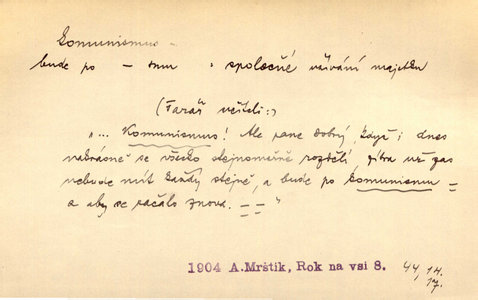 komunismus -
bude po – smu = společné užívání majetku
(Farář učiteli:)
„... Komunismus! Ale pane dobrý, když i dnes
nakrásně se všecko stejnoměrně rozdělí, zítra už zas
nebude mít každý stejně, a bude po komunismu –
a aby se začalo znova. – – "
1904 A.Mrštík, Rok na vsi 8.
44, 14.
17.